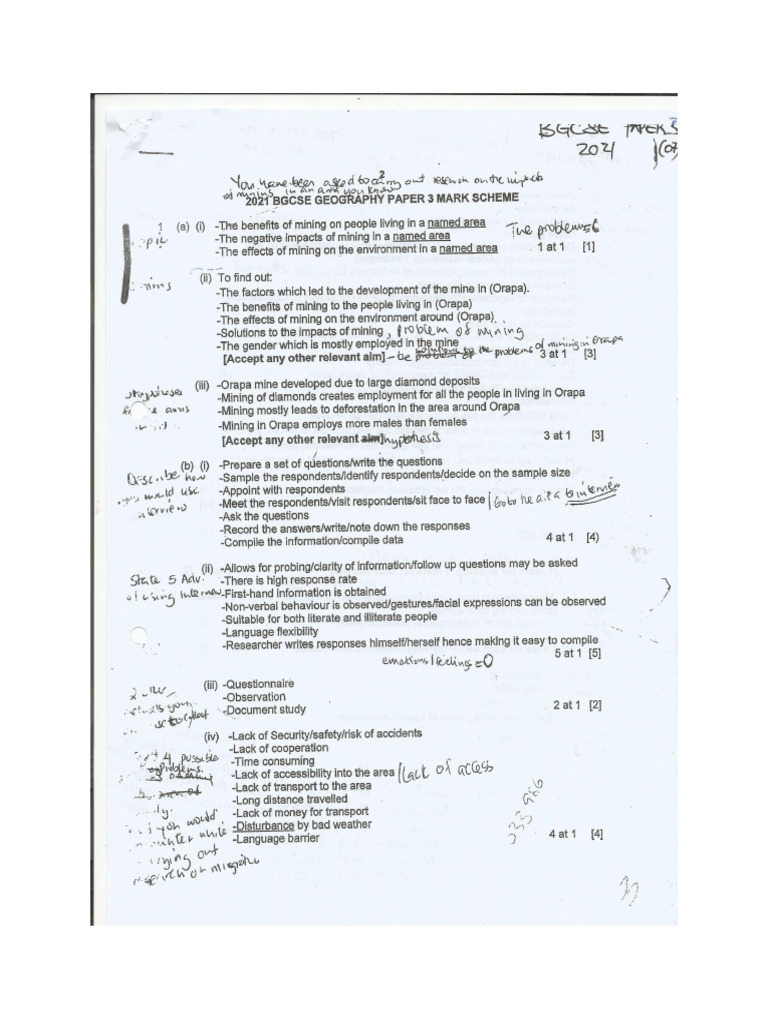 BGCSE PAPER 3
2021
You have been asked to carry out research on the impacts
of mining in an area you know
2021 BGCSE GEOGRAPHY PAPER 3 MARK SCHEME
1 (a) (i) -The benefits of mining on people living in a named area
-The negative impacts of mining in a named area
The problems=6
-The effects of mining on the environment in a named area 1 at 1 [1]
(ii) To find out:
-The factors which led to the development of the mine in (Orapa).
-The benefits of mining to the people living in (Orapa)
-The effects of mining on the environment around (Orapa)
-Solutions to the impacts of mining, problem of mining
-The gender which is mostly employed in the mine
[Accept any other relevant aim] the problems of mining in Orapa 3 at 1 [3]
(iii) -Orapa mine developed due to large diamond deposits
-Mining of diamonds creates employment for all the people in living in Orapa
-Mining mostly leads to deforestation in the area around Orapa
-Mining in Orapa employs more males than females
[Accept any other relevant aim] hypothesis 3 at 1 [3]
(b) (i) -Prepare a set of questions/write the questions
Describe how
-Sample the respondents/identify respondents/decide on the sample size
you would use
-Appoint with respondents
interview
-Meet the respondents/visit respondents/sit face to face /Go to the area to interview
-Ask the questions
-Record the answers/write/note down the responses
-Compile the information/compile data 4 at 1 [4)
(ii) -Allows for probing/clarity of information/follow up questions may be asked
State 5 Adv.
-There is high response rate
of using Interview
-First-hand information is obtained
-Non-verbal behaviour is observed/gestures/facial expressions can be observed
-Suitable for both literate and illiterate people
-Language flexibility
-Researcher writes responses himself/herself hence making it easy to compile
emotions/feelings=0 5 at 1 [5]
(iii) -Questionnaire
-Observation
-Document study 2 at 1 [2]
(iv) -Lack of Security/safety/risk of accidents
4 possible
-Lack of cooperation
problems.
-Time consuming
-Lack of accessibility into the area /Lack of access
-Lack of transport to the area
-Long distance travelled
-Lack of money for transport
you would
-Disturbance by bad weather
while
-Language barrier 4 at 1 [4]
out
research on